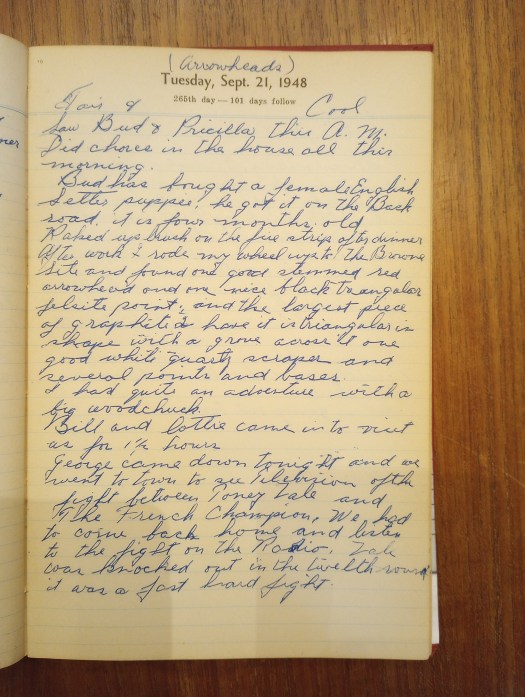 (Arrowheads)
Tuesday, Sept. 21, 1948
265th day — 101 days follow
Fair & Cool
Saw Bud & Pricilla this A.M.
Did chores in the house all this
morning.
Bud has bought a female English
Setter puppie, he got it on the Back
road. it is four months old
Raked up brush on the fire strip after dinner
After work I rode my wheel up to the
Site and found one good stemmed red
arrowhead and one nice black triangular
felsite point, and the largest piece
of graphite I have it is triangular in
shape with a grove across it one
good white quartz scraper and
several points and bases.
I had quite an adventure with a
big woodchuck.
Bill and Lottie came in to visit
us for 1½ hours
George came down tonight and we
went to town to see Television of the
fight between Toney Zale and
The French Champion, We had
to come back home and listen
to the fight on the Radio. Zale
was knocked out in the twelth round
it was a fast hard fight.